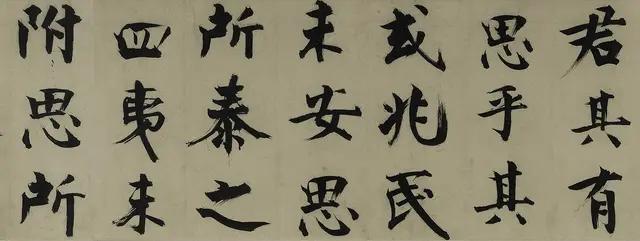 君其有
思乎其
或兆民
未安思
所泰之
四夷未
附思所